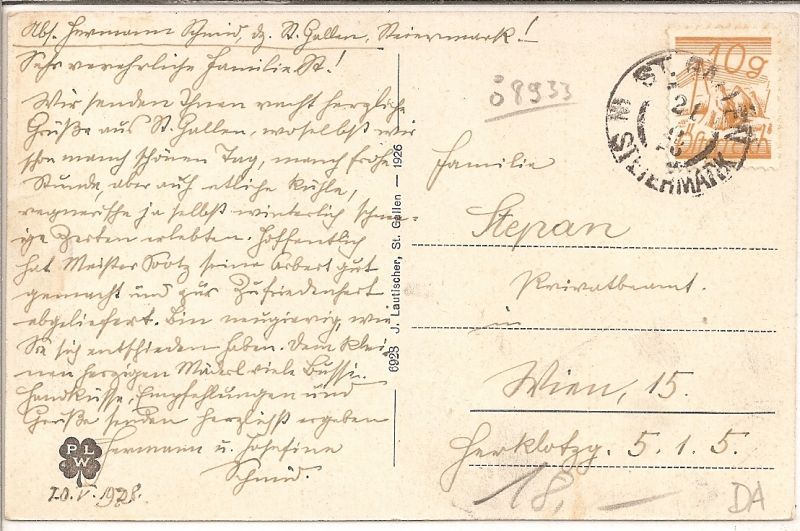 Abs. Hermann Schmid, dz. St. Gallen, Steiermark!
Sehr verehrliche Familie St!
Wir senden Ihnen recht herzliche
Grüße aus St. Gallen, woselbst wir
schon manch schönen Tag, manch frohe
Stunde, aber auch etliche kühle,
regnerische ja selbst winterlich schnee-
ige Zeiten erlebten. Hoffentlich
hat Meister seine Arbeit gut
gemacht und zur Zufriedenheit
abgeliefert. Bin neugierig, wie
Sie sich entschieden haben. Dem klei-
nen herzigen Mäderl viele Bussi.
Handküsse, Empfehlungen und
Grüße senden herzlichst ergeben
Hermann u. Josefine
Schmid.
PLW
20.V.1928.
6923 J. Lautischer, St. Gallen — 1926
ö8933
10g
ST. GALLEN
STEIERMARK
Familie
Stepan
Privatbeamt.
in
Wien, 15.
Herklotzg. 5.1.5.
18,—
DA